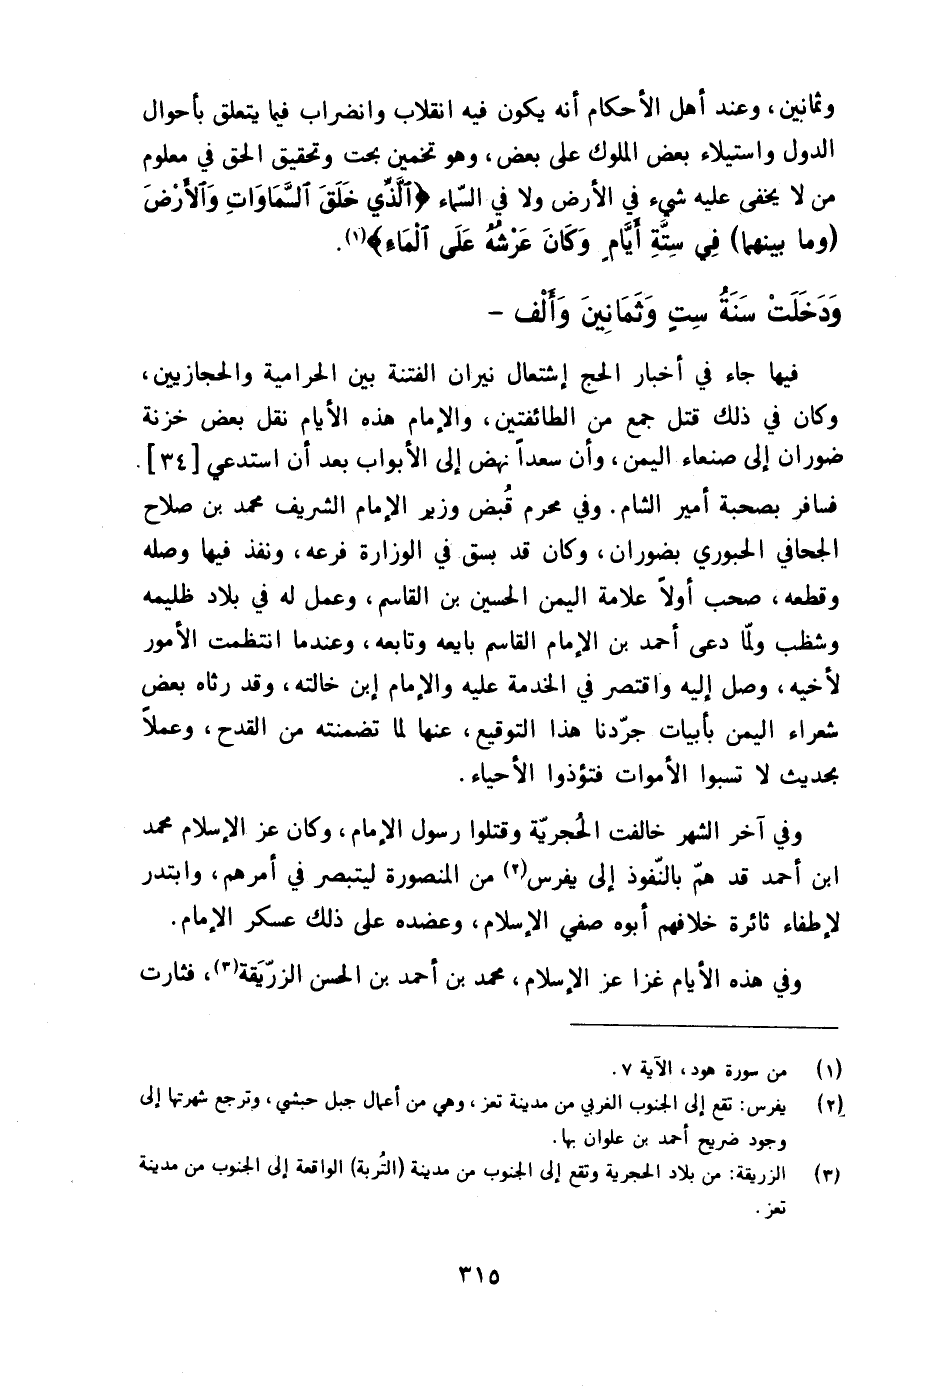 وثمانين، وعند أهل الأحكام أنه يكون فيه انقلاب وانضراب فيما يتعلق بأحوال
الدول واستيلاء بعض الملوك على بعض، وهو تخمين بحت وتحقيق الحق في معلوم
من لا يخفى عليه شيء في الأرض ولا في السّماء ﴿ٱلَّذِّي خَلَقَ ٱلسَّمَاوَاتِ وَٱلأَرْضَ
(وما بينهما) فِي سِتَّةِ أَيَّامٍ وَكَانَ عَرْشُهُ عَلَى ٱلْمَاء﴾(١).
وَدَخَلَتْ سَنَةُ سِتٍ وَثَمَانِينَ وَأَلْف -
فيها جاء في أخبار الحج إشتعال نيران الفتنة بين الحرامية والحجازيين،
وكان في ذلك قتل جمع من الطائفتين، والإمام هذه الأيام نقل بعض خزنة
ضوران إلى صنعاء اليمن، وأن سعداً نهض إلى الأبواب بعد أن استدعي [٣٤].
فسافر بصحبة أمير الشام. وفي محرم قُبض وزير الإمام الشريف محمد بن صلاح
الجحافي الحبوري بضوران، وكان قد بسق في الوزارة فرعه، ونفذ فيها وصله
وقطعه، صحب أولاً علامة اليمن الحسين بن القاسم، وعمل له في بلاد ظليمه
وشظب ولمّا دعى أحمد بن الإمام القاسم بايعه وتابعه، وعندما انتظمت الأمور
لأخيه، وصل إليه واقتصر في الخدمة عليه والإمام إبن خالته، وقد رثاه بعض
شعراء اليمن بأبيات جرّدنا هذا التوقيع، عنها لما تضمنته من القدح، وعملاً
بحديث لا تسبوا الأموات فتؤذوا الأحياء.
وفي آخر الشهر خالفت الحُجريّة وقتلوا رسول الإمام، وكان عز الإسلام محمد
ابن أحمد قد همّ بالنّفوذ إلى يفرس(٢) من المنصورة ليتبصر في أمرهم، وابتدر
لإطفاء ثائرة خلافهم أبوه صفي الإسلام، وعضده على ذلك عسكر الإمام.
وفي هذه الأيام غزا عز الإسلام، محمد بن أحمد بن الحسن الزرّيَقة(٣)، فثارت
(١) من سورة هود، الآية ٧.
(٢) يفرس: تقع إلى الجنوب الغربي من مدينة تعز، وهي من أعمال جبل حبشي، وترجع شهرتها إلى
وجود ضريح أحمد بن علوان بها.
(٣) الزريقة: من بلاد الحجرية وتقع إلى الجنوب من مدينة (التُربة) الواقعة إلى الجنوب من مدينة
تعز.
٣١٥